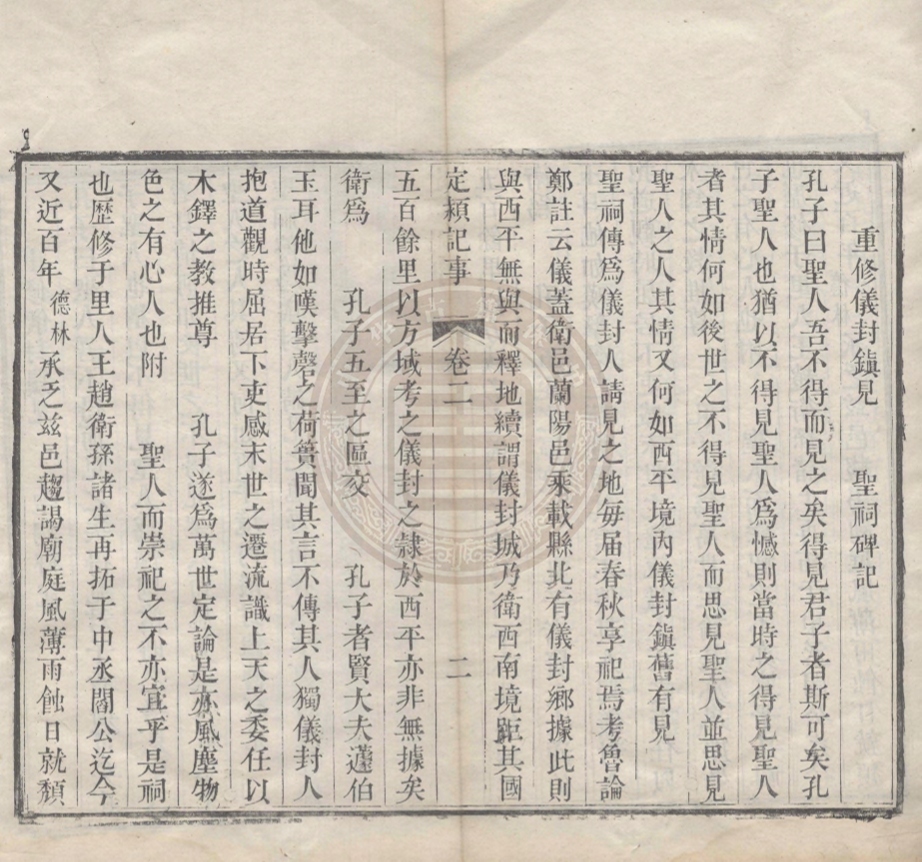 重修儀封鎮見　聖祠碑記
孔子曰聖人吾不得而見之矣得見君子者斯可矣孔
子聖人也猶以不得見聖人爲憾則當時之得見聖人
者其情何如後世之不得見聖人而思見聖人並思見
聖人之人其情又何如西平境內儀封鎮舊有見
聖祠傳爲儀封人請見之地毎届春秋享祀焉考魯論
鄭註云儀蓋衛邑蘭陽邑乘載縣北有儀封鄉據此則
與西平無與而釋地續謂儀封城乃衛西南境距其國
定潁記事　卷二　二
五百餘里以方域考之儀封之隸於西平亦非無據矣
衛爲　孔子五至之區交　孔子者賢大夫蘧伯
玉耳他如嘆擊磬之荷蕢聞其言不傳其人獨儀封人
抱道觀時屈居下吏感末世之遷流識上天之委任以
木鐸之教推尊　孔子遂爲萬世定論是亦風塵物
色之有心人也附　聖人而崇祀之不亦宜乎是祠
也歴修于里人王趙衛孫諸生再拓于中丞閻公迄今
又近百年德林承乏兹邑趨謁廟庭風薄雨蝕日就頹